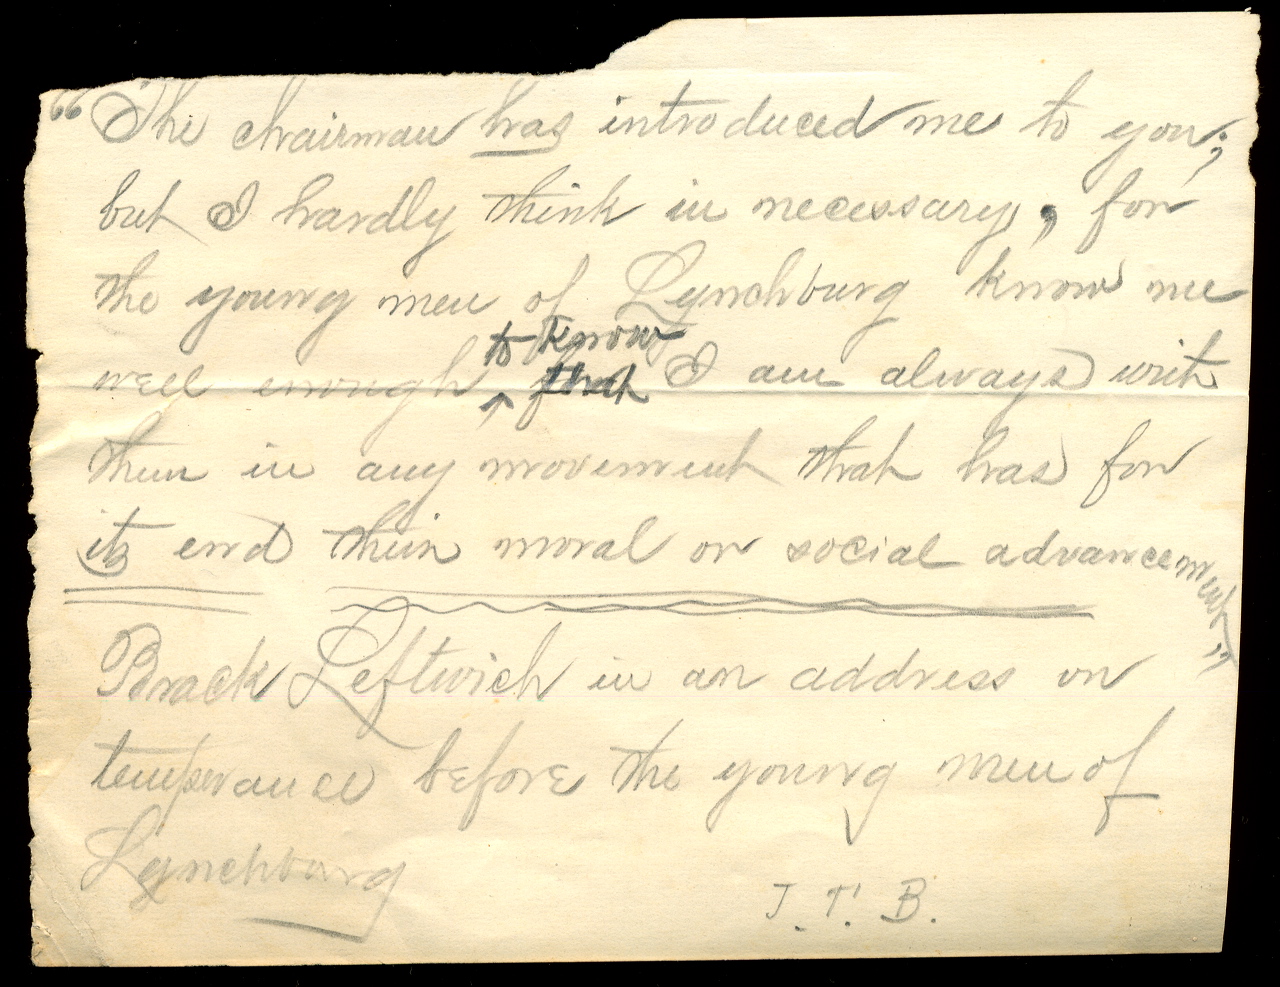 "The chairman has introduced me to you;
but I hardly think in necessary, for
the young men of Lynchburg know me
to know
well enough that I am always with
them in any movement that has for
its end their moral or social advancement."
Brack Leftwich in an address on
temperance before the young men of
Lynchburg
J. T. B.